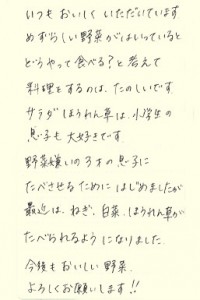 いつもおいしくいただいています
めずらしい野菜がはいっていると
どうやって食べる?と考えて
料理をするのは、たのしいです
サラダほうれん草は、小学生の
息子も大好きです
野菜嫌いの3才の息子に
たべさせるためにはじめましたが
最近は、ねぎ、白菜、ほうれん草が
たべられるようになりました
今後もおいしい野菜
よろしくお願いします!!